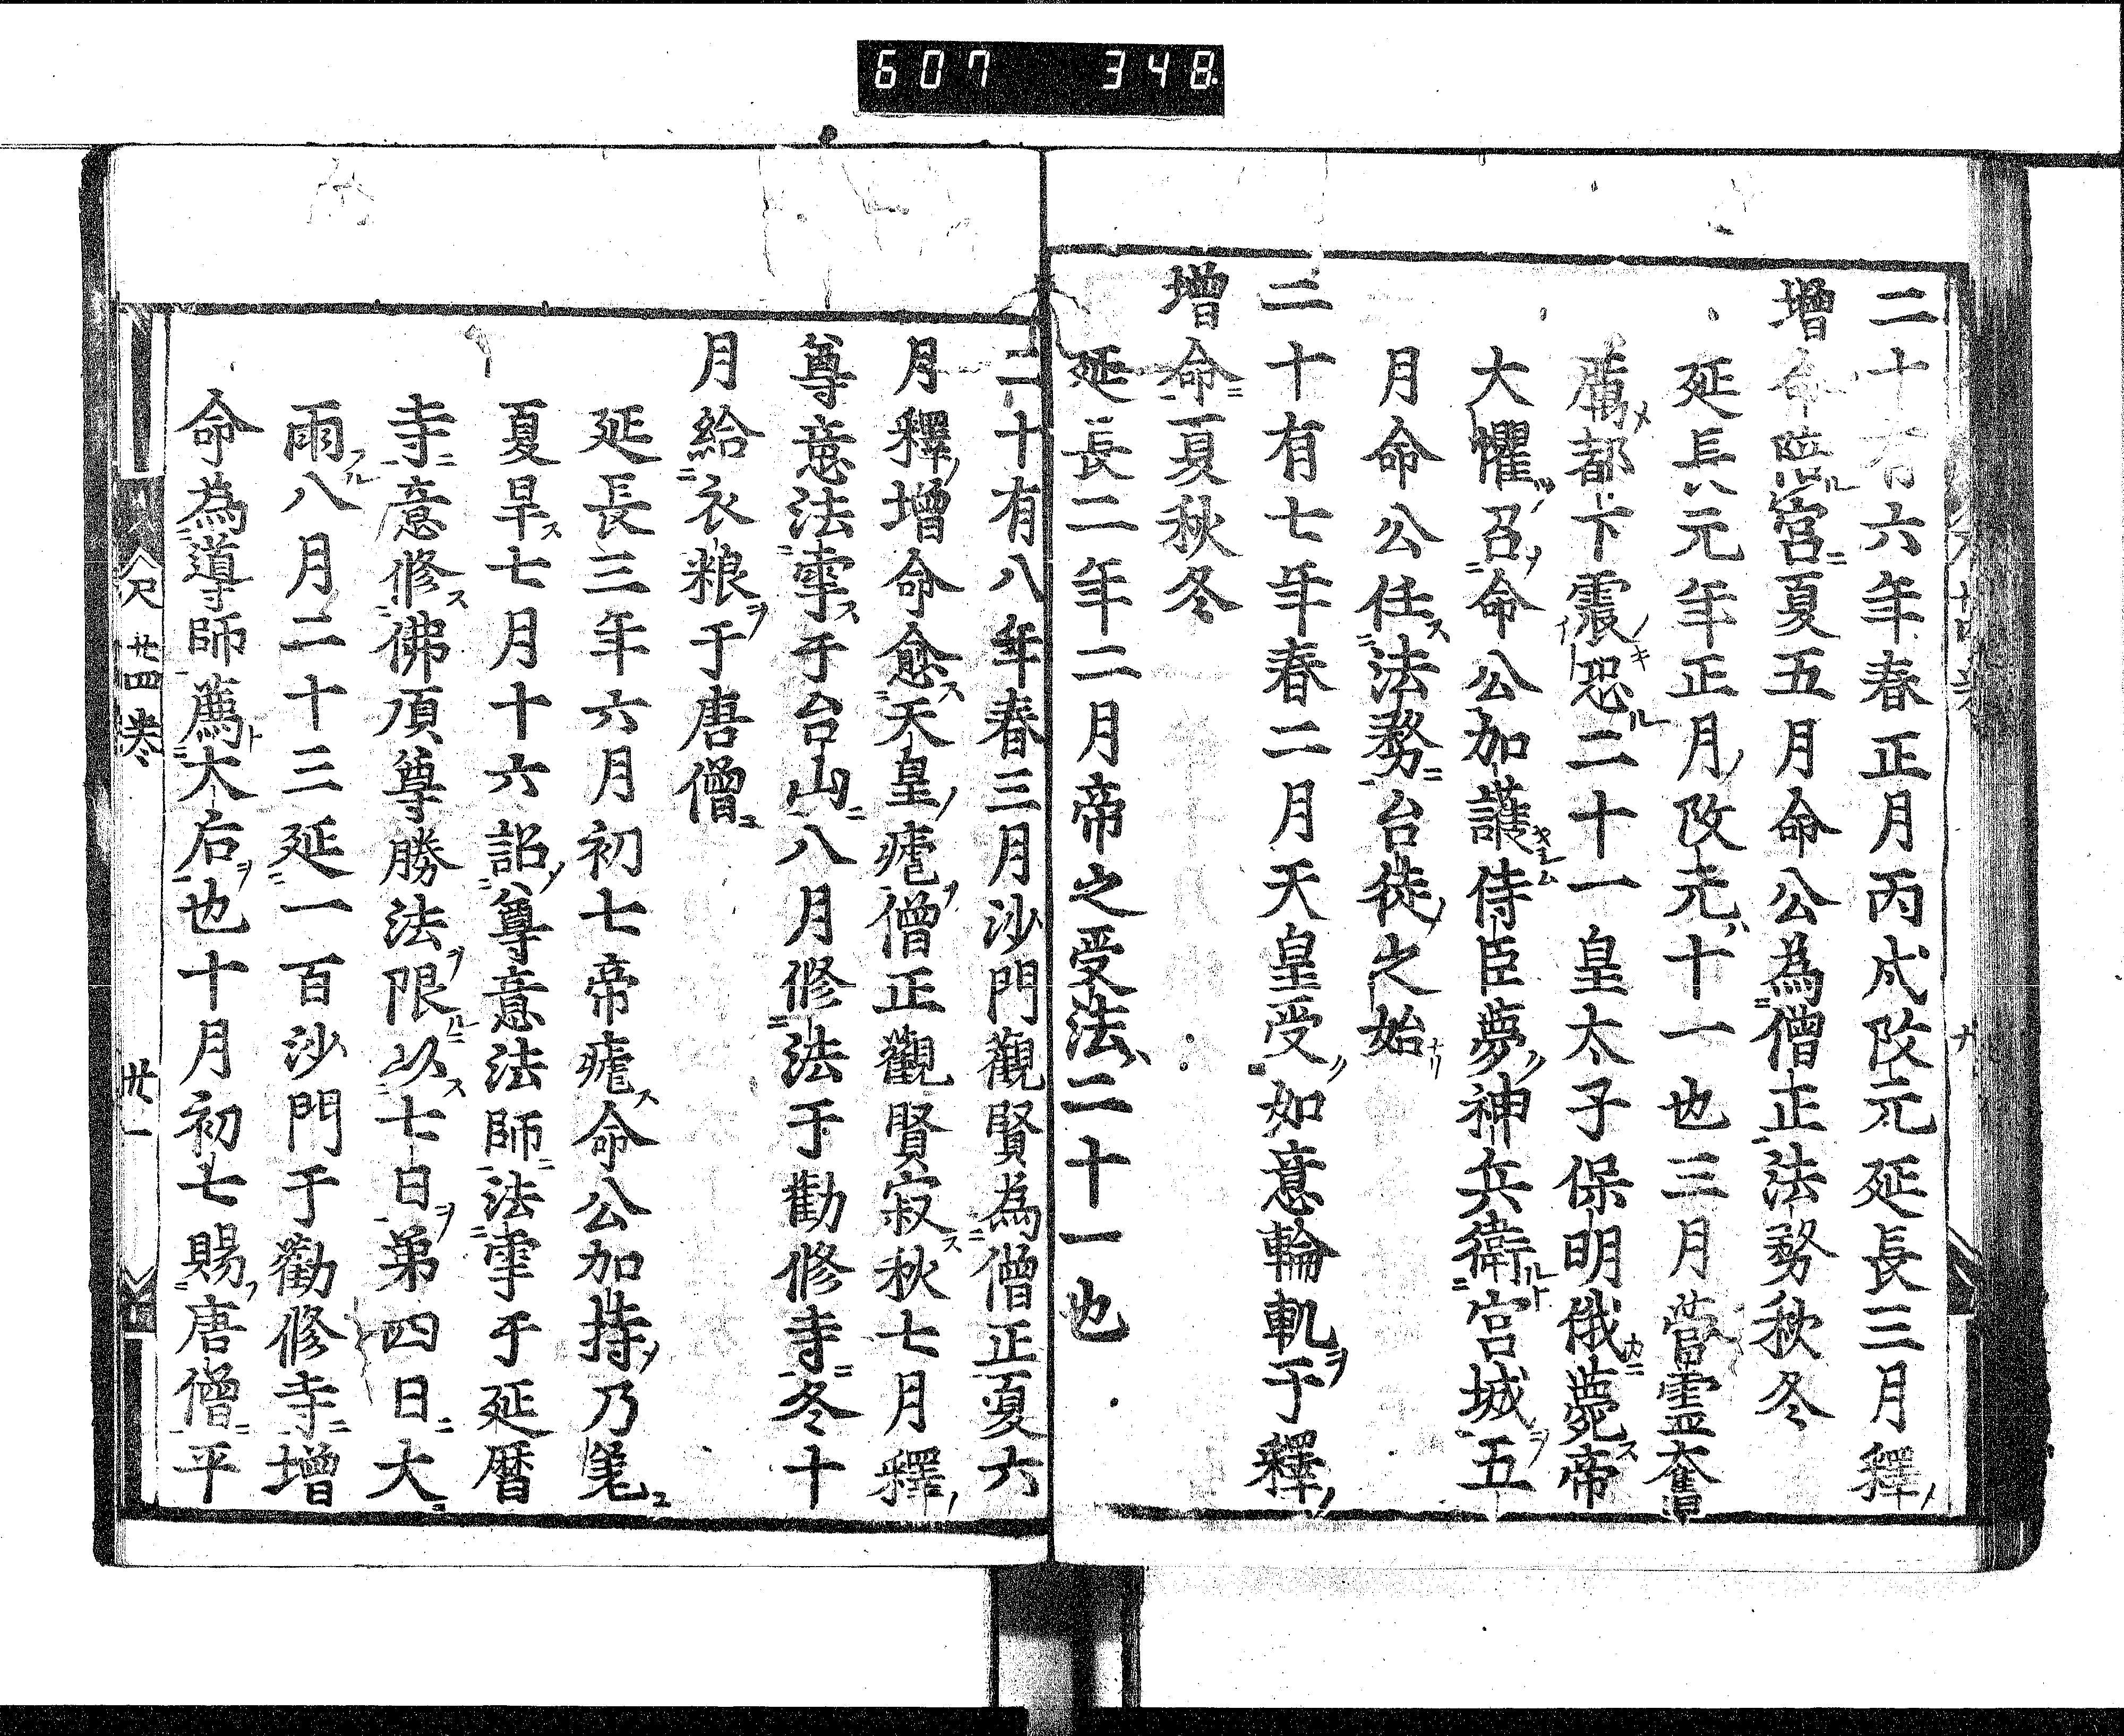 607 348
二十有六年春正月丙戌改元延長三月釋
增命臨宮夏五月命公為僧正法務秋冬
延長元年正月改元十一也三月菅霊奮
厲都下震恐二十一皇太子保明俄薨帝
大懼召命公加護侍臣夢神兵衛宮城五
月命公任法務台徒之始
二十有七年春二月天皇受如意輪軌于釋
增命夏秋冬
延長二年二月帝之受法二十一也
二十有八年春三月沙門觀賢為僧正夏六
月釋增命愈天皇瘧僧正觀賢寂秋七月釋
尊意法雩于台山八月修法于勸修寺冬十
月給衣粮于唐僧
延長三年六月初七帝瘧命公加持乃差
夏旱七月十六詔尊意法師法雩于延暦
寺意修佛頂尊勝法限以七日第四日大
雨八月二十三延一百沙門于勸修寺增
命為導師薦大后也十月初七賜唐僧平
尺 廿四巻 廿一